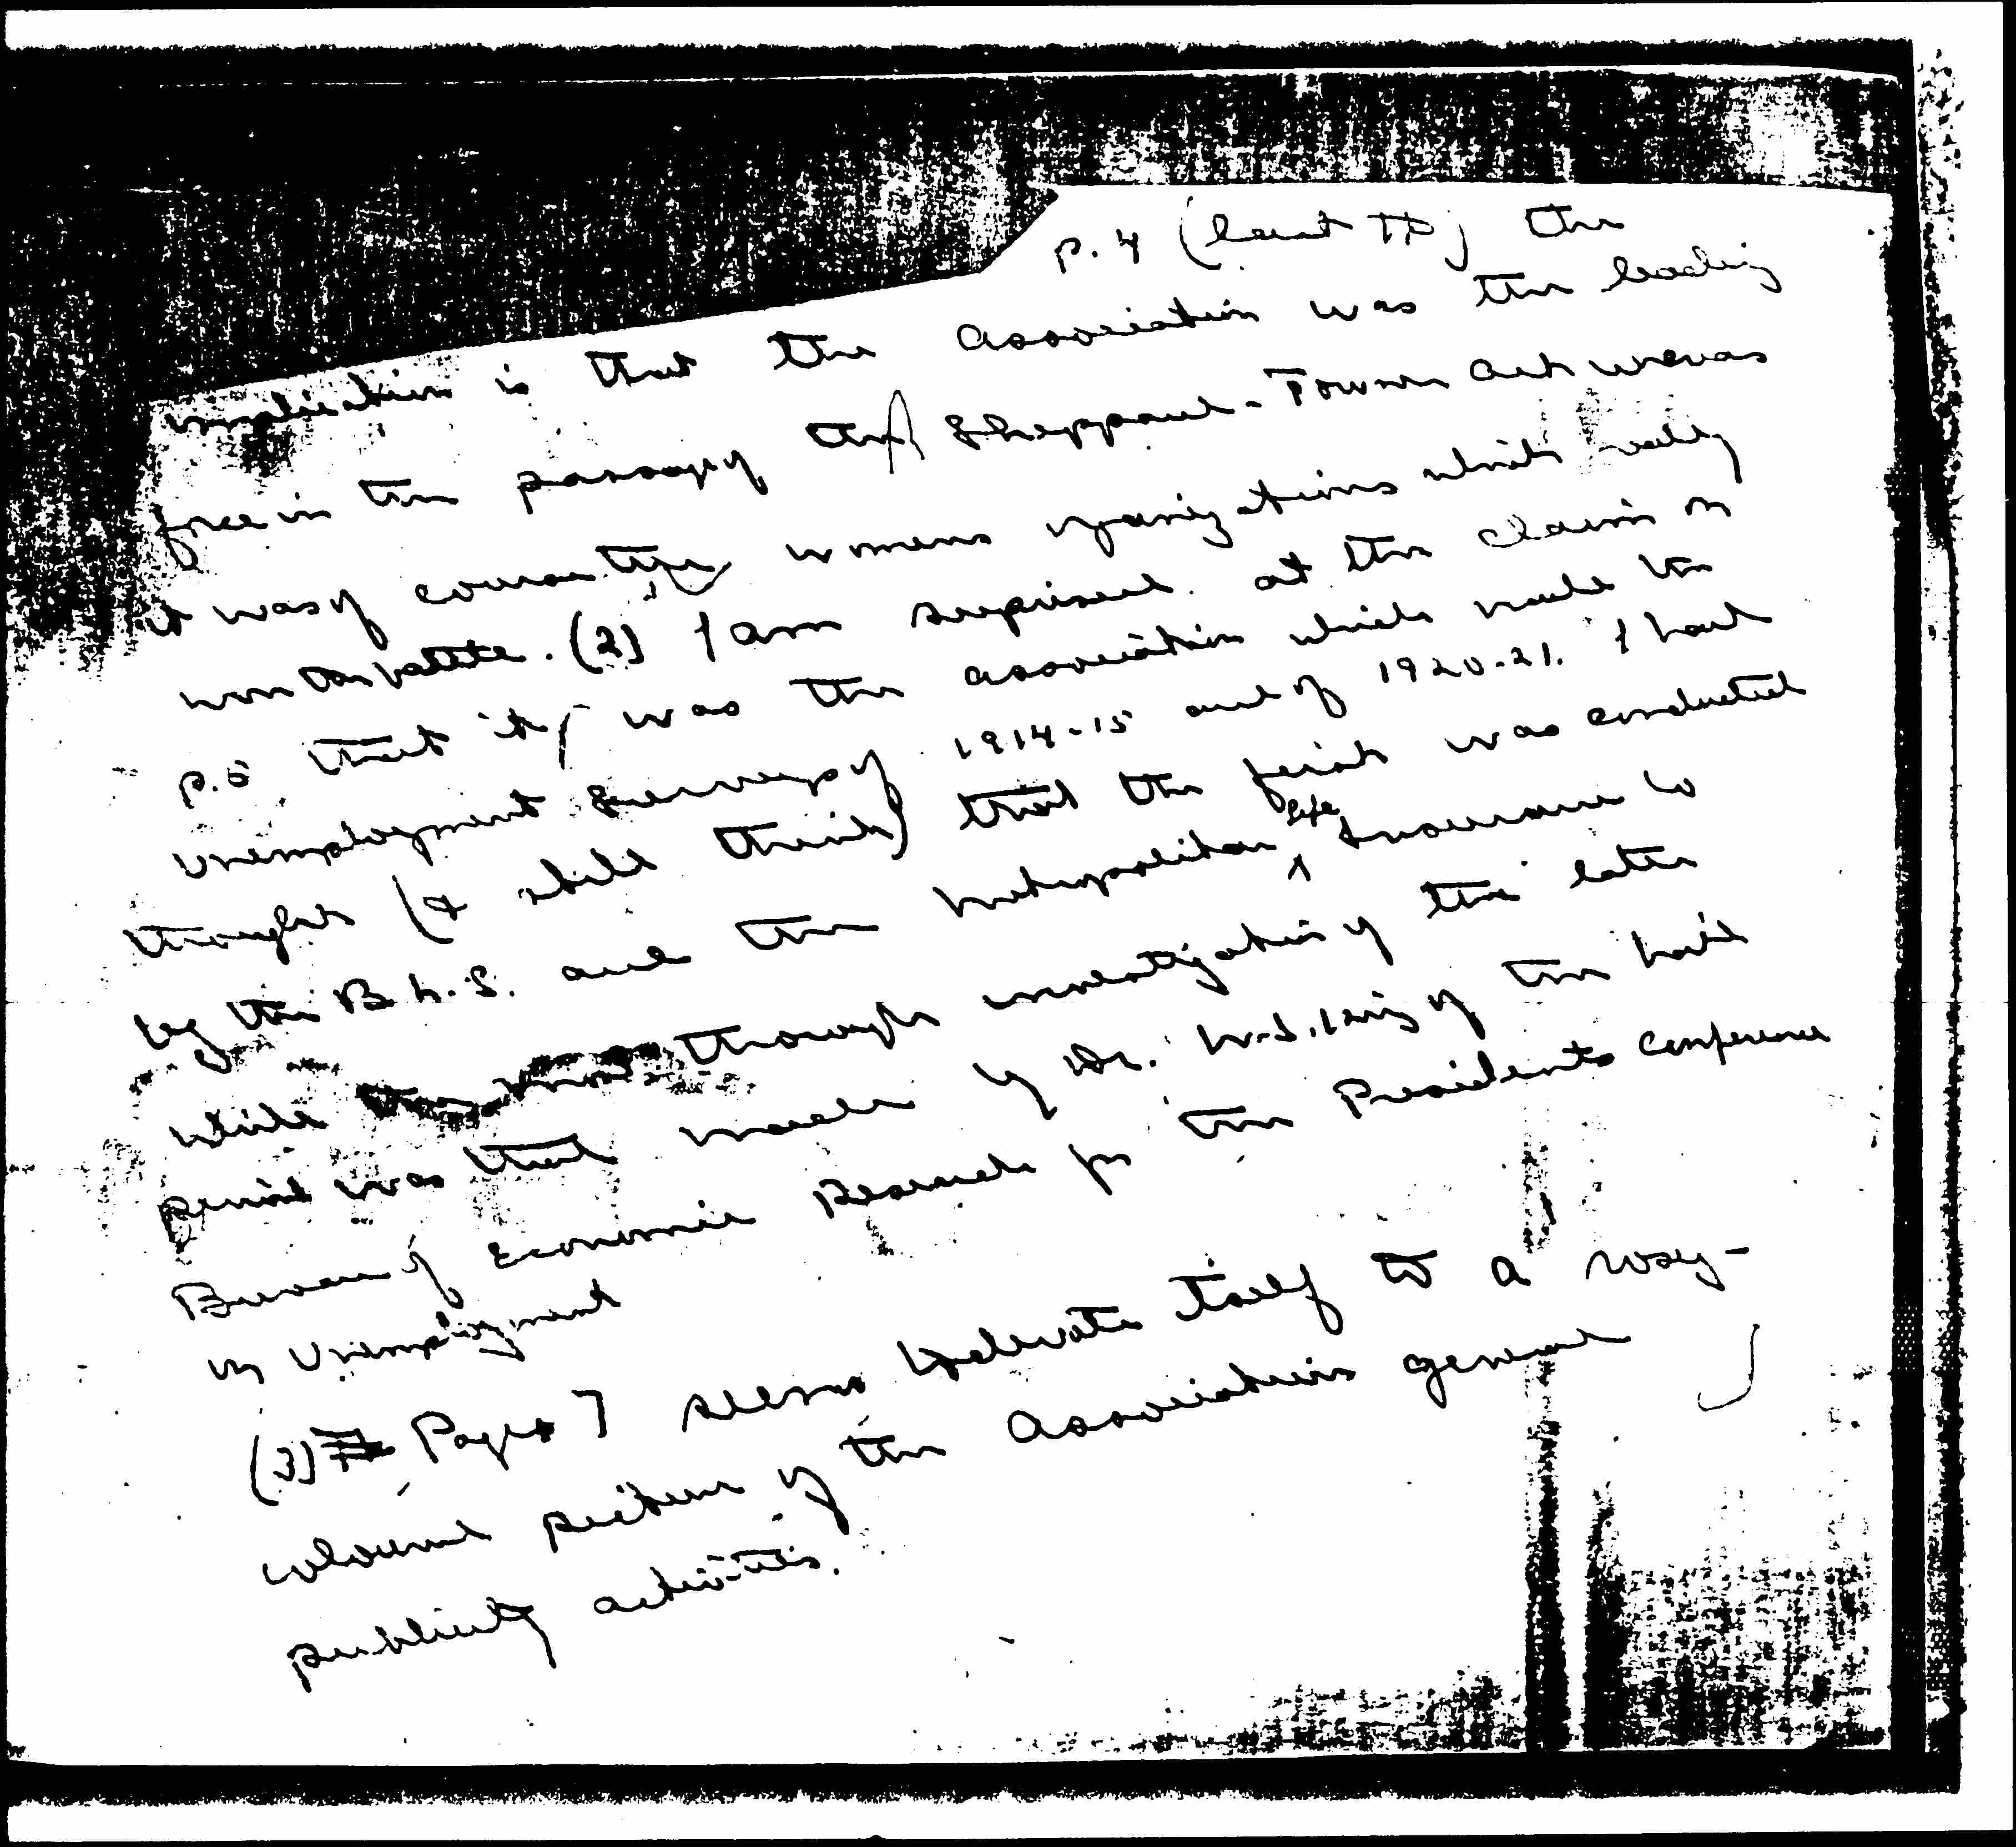 p. 4 (last ¶) the
implication is that the Association was the leading
force in the passage of the Sheppard-Towner Act whereas
it was of course the womens organizations which really
won the battle. (2) I am surprised at the claim on
p. 5 that it was the association which made the
Unemployment Surveys of 1914-15 and of 1920-21. I had
thought (& still think) that the first was conducted
by the B.L.S. and the Metropolitan Life Insurance Co
while thorough investigation of the later
period was that made by Dr. W.I. King of the Nat'l
Bureau of Economic Research for the Presidents Conference
on Unemployment
(3) Page 7 seems to devote itself to a rosy-
coloured picture of the Associations general
publicity activities.